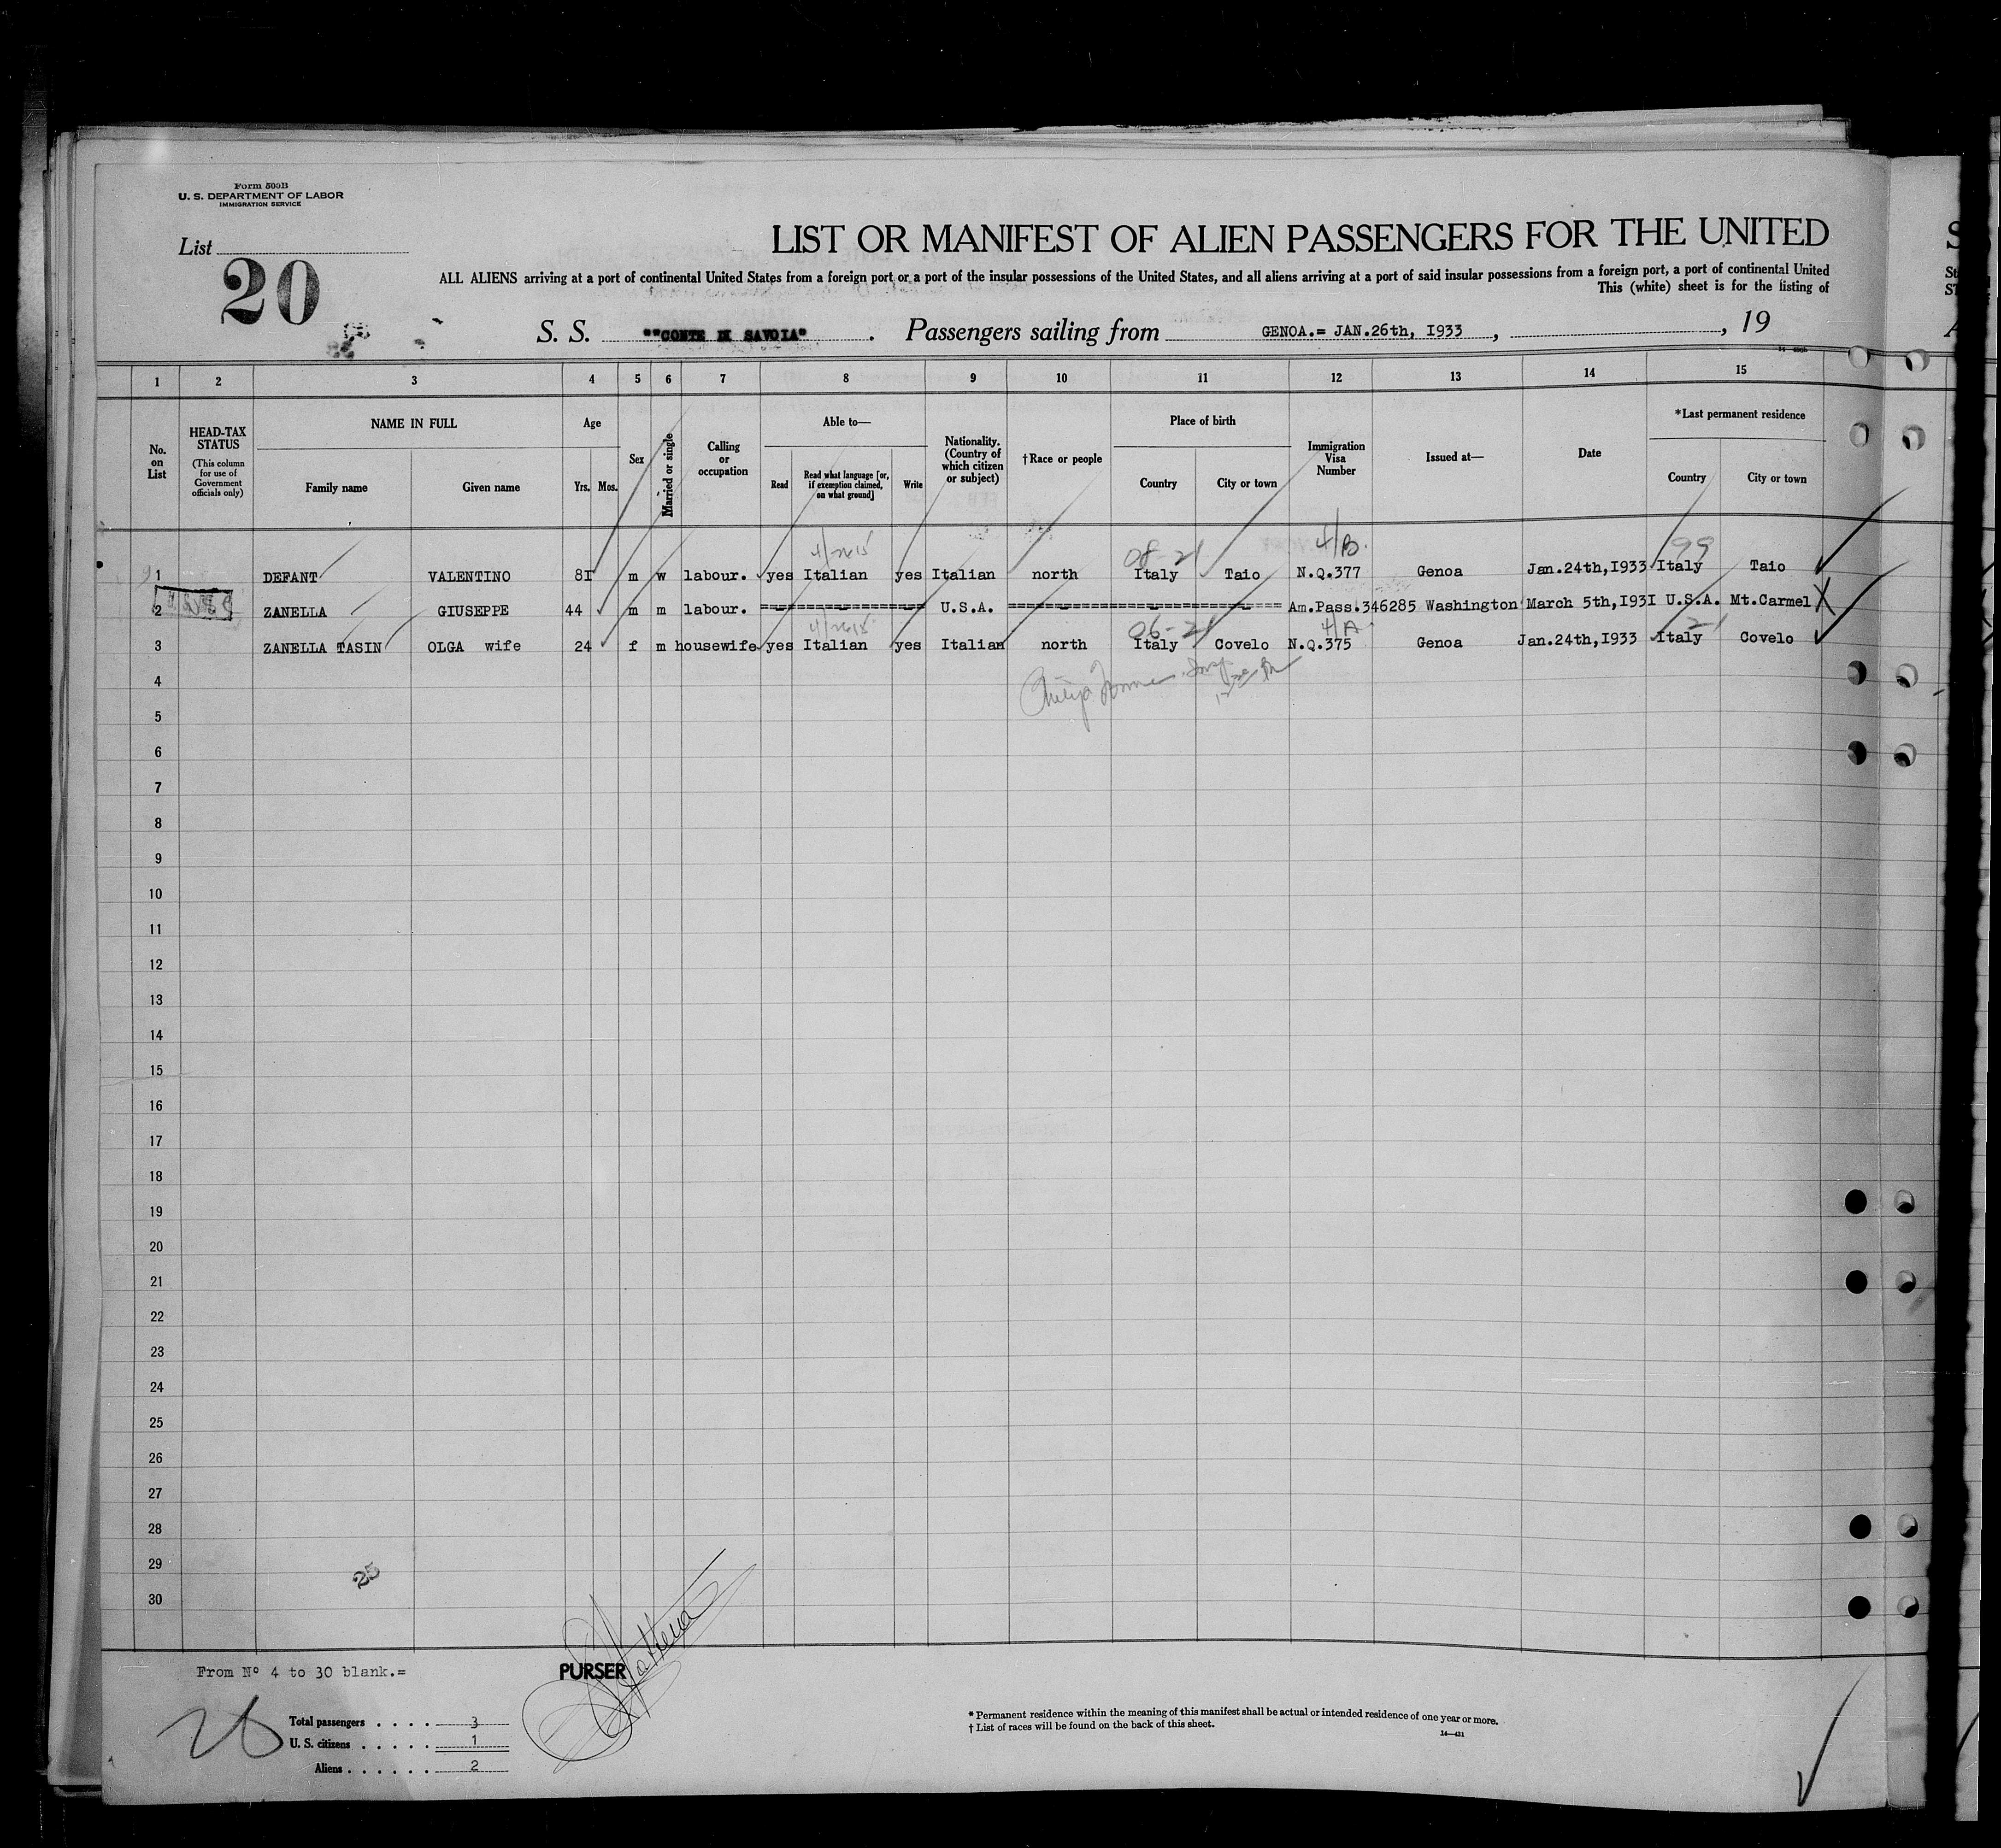 Form 500B
U. S. DEPARTMENT OF LABOR
IMMIGRATION SERVICE
List
20
LIST OR MANIFEST OF ALIEN PASSENGERS FOR THE UNITED
ALL ALIENS arriving at a port of continental United States from a foreign port or a port of the insular possessions of the United States, and all aliens arriving at a port of said insular possessions from a foreign port, a port of continental United
This (white) sheet is for the listing of
S. S. ""CONTE DI SAVOIA". Passengers sailing from GENOA.= JAN.26th, I933, , 19
1 2 3 4 5 6 7 8 9 10 11 12 13 14 15
No. on List
HEAD-TAX STATUS
(This column for use of Government officials only)
NAME IN FULL
Family name Given name
Age
Yrs. Mos.
Sex
Married or single
Calling or occupation
Able to—
Read
Read what language [or, if exemption claimed, on what ground]
Write
Nationality. (Country of which citizen or subject)
†Race or people
Place of birth
Country City or town
Immigration Visa Number
Issued at—
Date
*Last permanent residence
Country City or town
08-21 4/B. 99
1 DEFANT VALENTINO 8I m w labour. yes Italian yes Italian north Italy Taio N.Q.377 Genoa Jan.24th,I933 Italy Taio
2 ZANELLA GIUSEPPE 44 m m labour. ================ U.S.A. =========================== Am.Pass.346285 Washington March 5th,I93I U.S.A. Mt.Carmel X
06-21 4/A 21
3 ZANELLA TASIN OLGA wife 24 f m housewife yes Italian yes Italian north Italy Covelo N.Q.375 Genoa Jan.24th,I933 Italy Covelo
4
5
6
7
8
9
10
11
12
13
14
15
16
17
18
19
20
21
22
23
24
25
26
27
28
29
30
25
From Nº 4 to 30 blank.=
PURSER
Total passengers . . . . 3
U. S. citizens . . . . . 1
Aliens . . . . . . 2
* Permanent residence within the meaning of this manifest shall be actual or intended residence of one year or more.
† List of races will be found on the back of this sheet.
14—431